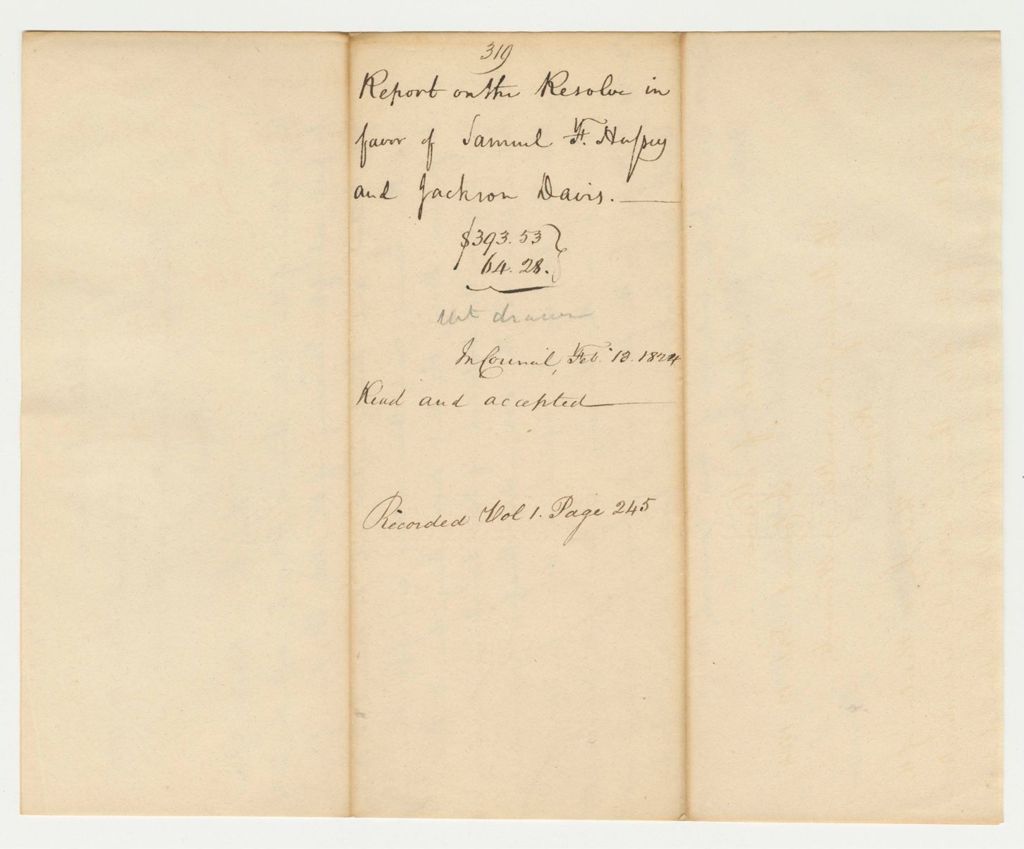 319
Report on the Resolve in
favor of Samuel F. Hussey
and Jackson Davis.
$393.53
64.28.
Wt drawn
In Council, Feb. 13. 1824
Read and accepted
Recorded Vol 1. Page 245